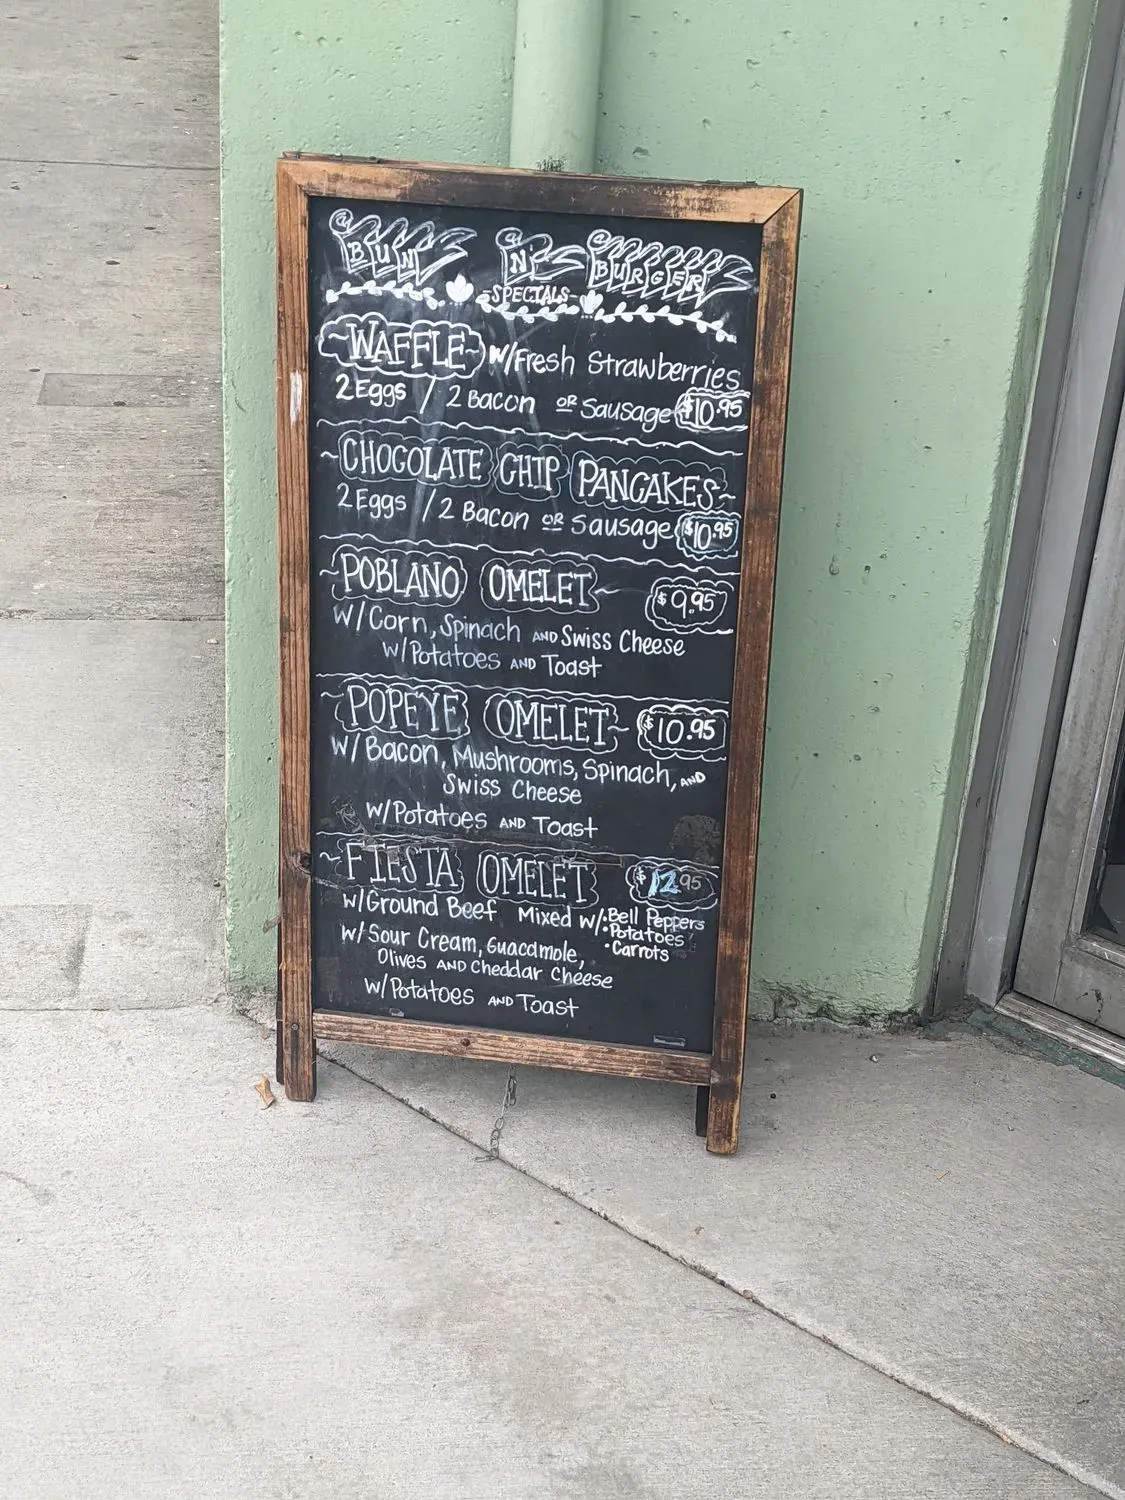 BUN N BURGER
-SPECIALS-
~WAFFLE~ W/Fresh Strawberries
2 Eggs / 2 Bacon OR Sausage $10.95
~CHOCOLATE CHIP PANCAKES~
2 Eggs / 2 Bacon OR Sausage $10.95
~POBLANO OMELET~ $9.95
W/Corn, Spinach AND Swiss Cheese
W/Potatoes AND Toast
~POPEYE OMELET~ $10.95
W/Bacon, Mushrooms, Spinach, AND
Swiss Cheese
W/Potatoes AND Toast
~FIESTA OMELET $12.95
W/Ground Beef Mixed W/ •Bell Peppers
•Potatoes
•Carrots
W/Sour Cream, Guacamole,
Olives AND Cheddar Cheese
W/Potatoes AND Toast